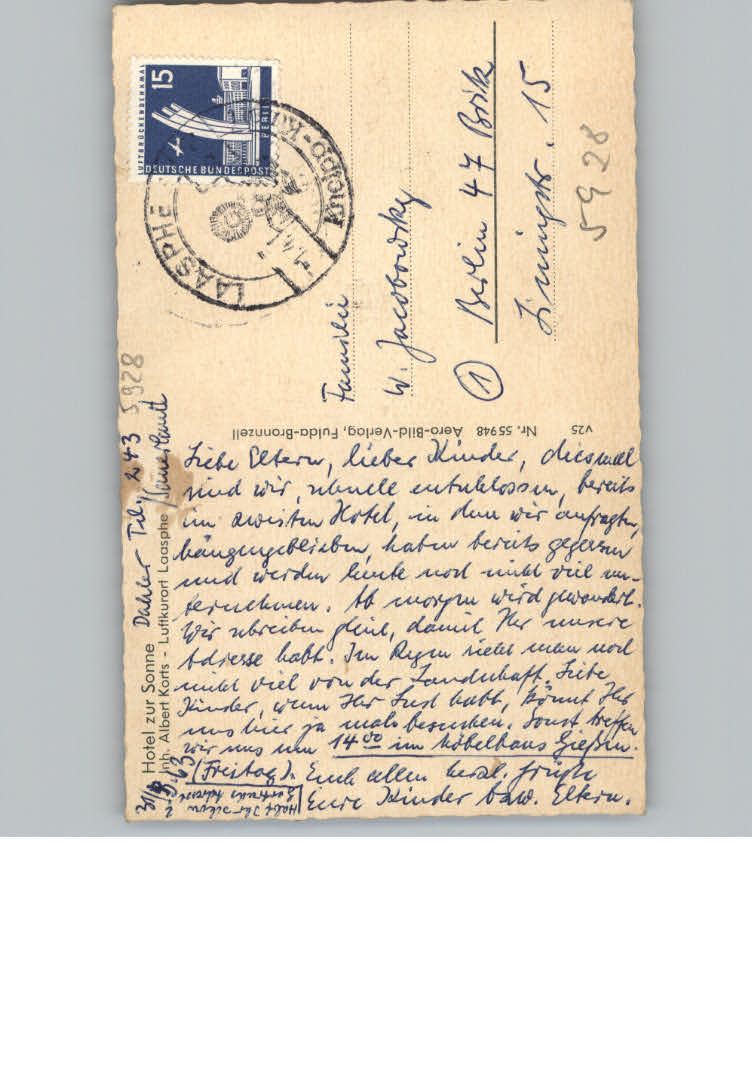 15
LUFTBRÜCKENDENKMAL
BERLIN
DEUTSCHE BUNDESPOST
LAASPHE
Kneipp-K
Familie
W. Jacobowsky
① Berlin 47 Britz
15
5928
Nr. 55948 Aero-Bild-Verlag, Fulda-Bronnzell
V25
Dahler Tel. 243 5928
Hotel zur Sonne
Inh. Albert Korts - Luftkurort Laasphe /Sauerland
Liebe Eltern, lieber Kinder, diesmal
sind wir, schnell entschlossen, bereits
im zweiten Hotel, in dem wir anfragten,
hängengeblieben, haben bereits gegessen
und werden heute noch nicht viel un-
ternehmen. Ab morgen wird gewandert.
Wir schreiben gleich, damit Ihr unsere
Adresse habt. Im Regen sieht man noch
nicht viel von der Landschaft. Liebe
Kinder, wenn Ihr Lust habt, könnt Ihr
uns hier ja mals besuchen. Sonst treffen
wir uns um 14⁰⁰ im Möbelhaus Gießen.
(Freitag). Euch allen herzl. Grüße
Eure Kinder bzw. Eltern.
Habt Ihr schon
Adresse